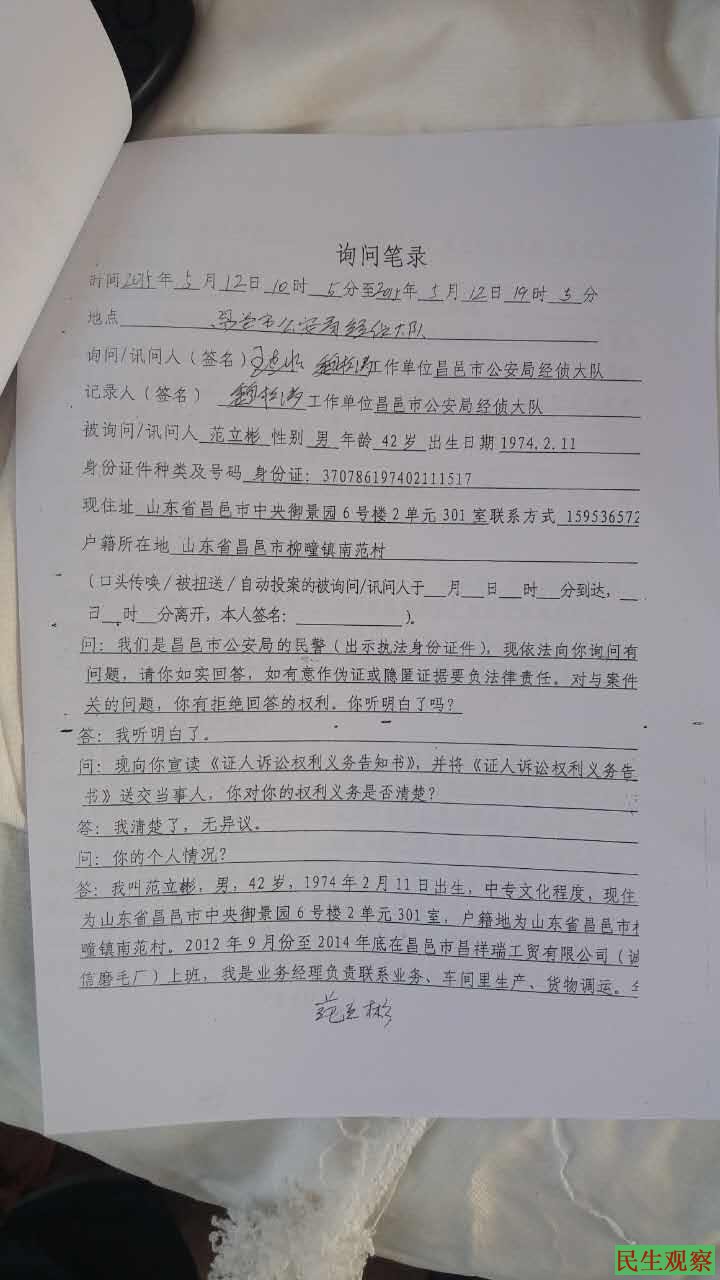 询问笔录
时间2015年 5 月 12日 10时 5分至2015年 5月 12日 19时 5分
地点 昌邑市公安局经侦大队
询问/讯问人（签名） 工作单位昌邑市公安局经侦大队
记录人（签名） 工作单位昌邑市公安局经侦大队
被询问/讯问人 范立彬 性别 男 年龄 42岁 出生日期 1974.2.11
身份证件种类及号码 身份证：370786197402111517
现住址 山东省昌邑市中央御景园6号楼2单元301室联系方式 159536572
户籍所在地 山东省昌邑市柳疃镇南范村
（口头传唤/被扭送/自动投案的被询问/讯问人于__月__日__时__分到达，__
日__时__分离开，本人签名：________）。
问：我们是昌邑市公安局的民警（出示执法身份证件），现依法向你询问有
问题，请你如实回答，如有意作伪证或隐匿证据要负法律责任。对与案件
关的问题，你有拒绝回答的权利。你听明白了吗？
答：我听明白了。
问：现向你宣读《证人诉讼权利义务告知书》，并将《证人诉讼权利义务告
书》送交当事人，你对你的权利义务是否清楚？
答：我清楚了，无异议。
问：你的个人情况？
答：我叫范立彬，男，42岁，1974年2月11日出生，中专文化程度，现住
为山东省昌邑市中央御景园6号楼2单元301室，户籍地为山东省昌邑市
疃镇南范村。2012年9月份至2014年底在昌邑市昌祥瑞工贸有限公司（诚
信磨毛厂）上班，我是业务经理负责联系业务、车间里生产、货物调运。
范立彬
民生观察